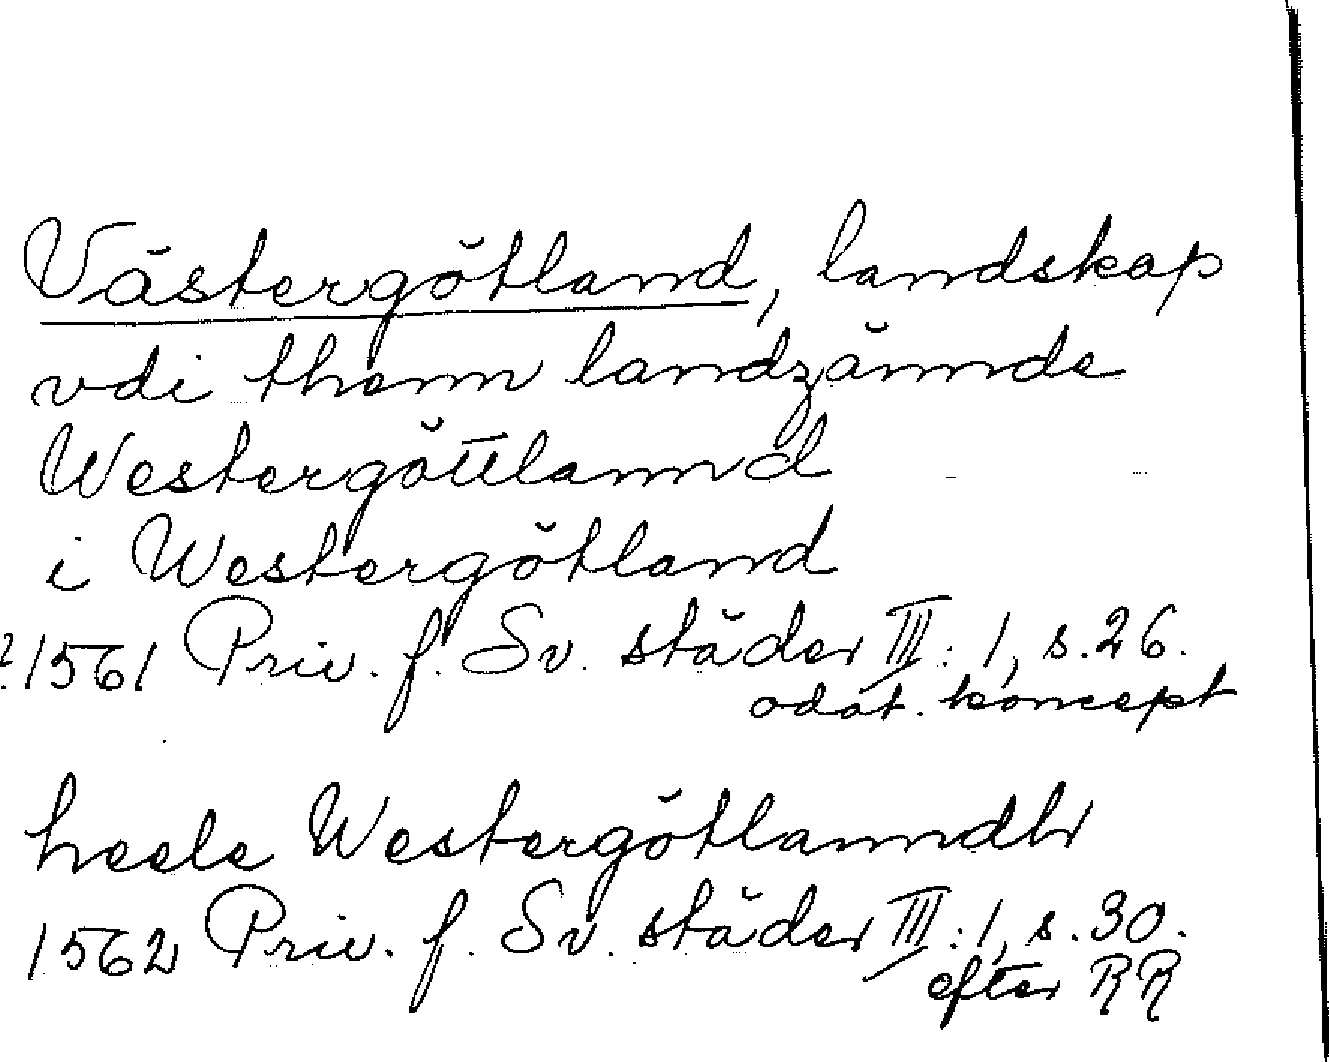 Västergötland, landskap
vdi them landzännde
Westergöttlannd
i Westergötland
?1561 Priv. f. Sv. städer III: 1, s. 26.
odat. koncept
heele Westergötlanndh
1562 Priv. f. Sv. städer III: 1, s. 30.
efter RR